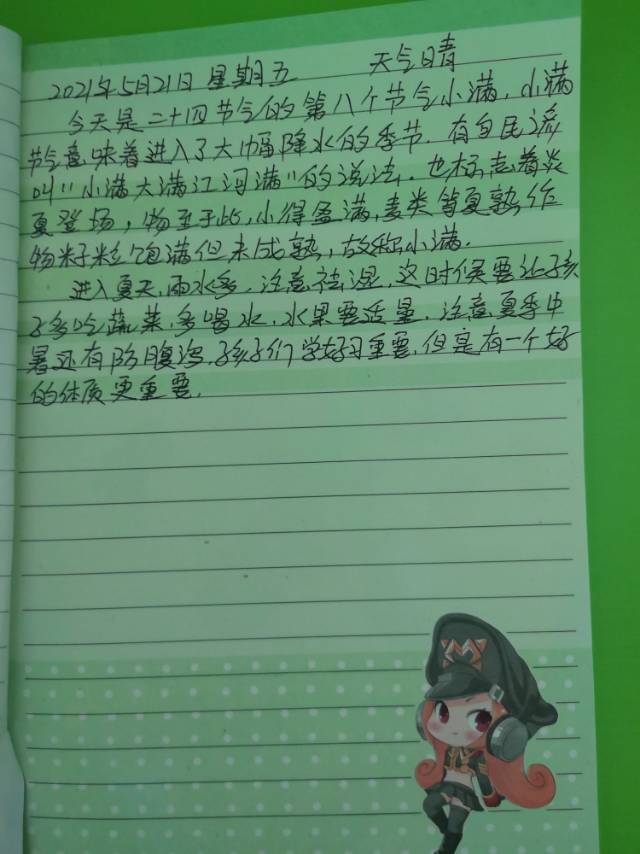 2021年5月21日 星期五 天气晴
今天是二十四节气的第八个节气小满，小满
节气意味着进入了大幅降水的季节．有自民谣
叫"小满大满江河满"的说法．也标志着炎
夏登场，物至于此，小得盈满，麦类等夏熟作
物籽粒饱满但未成熟，故称小满．
进入夏天，雨水多．注意祛湿，这时候要让孩
子多吃蔬菜，多喝水，水果要适量．注意夏季中
暑还有防腹泻．孩子们学好习重要，但是有一个好
的体质更重要．